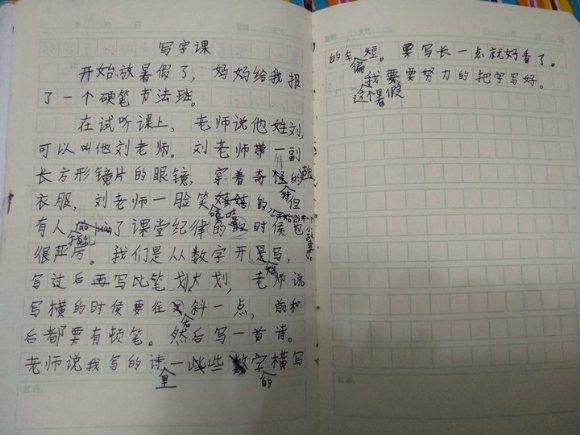 写字课
开始放暑假了，妈妈给我报
了一个硬笔书法班。
在试听课上，老师说他姓刘，
可以叫他刘老师。刘老师带一副
长方形镜片的眼镜，穿着奇怪的
衣服，刘老师一脸笑嘻嘻的，但
有人扰乱了课堂纪律的时候也
很严厉。我们是从数字开始写，
写过后再写比笔划，老师说
写横的时候要往右斜一点，前和
后都要有顿笔。然后写一首诗。
老师说我写的诗里一些字横写
的偏短。要写长一点就好看了。
这个暑假我要努力的把字写好。